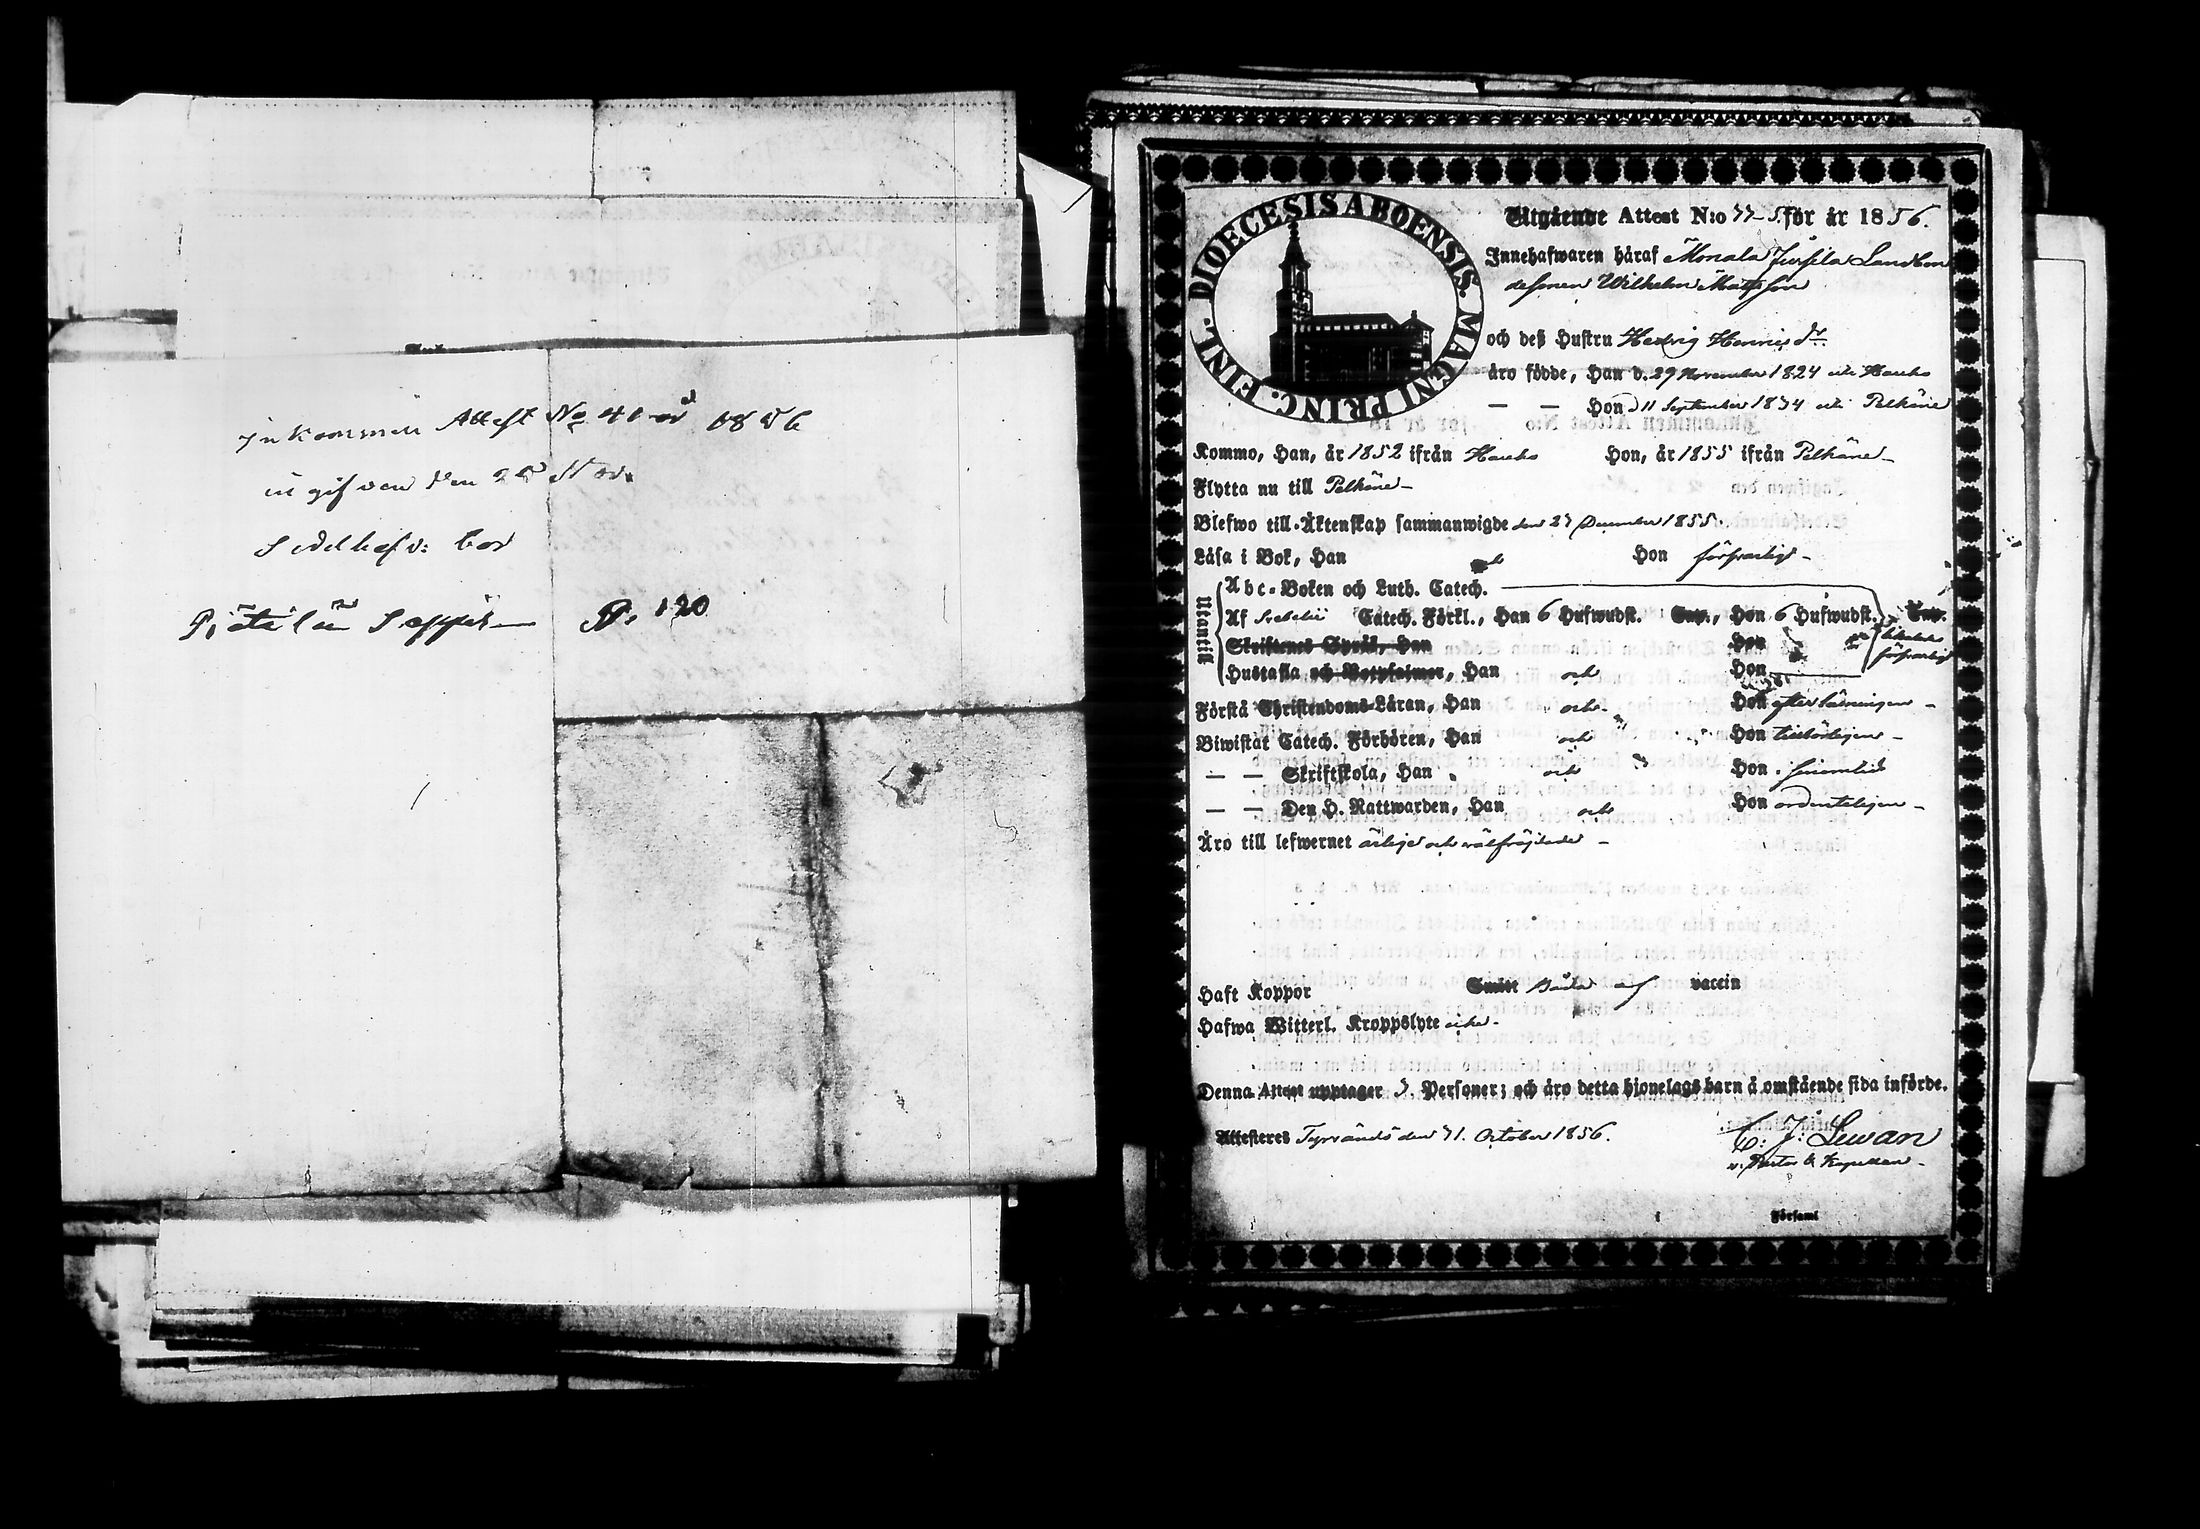 Inkommen Attest No 41 år 1856
in gifven den 25 Nov.
Sedelhafv: bor
Pjätilä Seppä P. 120
DIOECESIS ABOENSIS. MAGNI PRINC. FINL.
Utgående Attest N:o 77-5. för år 1856.
Innehafwaren häraf Monala Jussila Landbon
dessmen Wilhelm Matsson
och deß Hustru Hedvig Henricsdr.
äro födde, Han d. 29 November 1824 uti Hauho
— — Hon d 11 September 1834 uti Pelkäne
Kommo, Han, år 1852 ifrån Hauho Hon, år 1855 ifrån Pelkäne
Flytta nu till Pelkäne
Blefwo till Äktenskap sammanwigde den 27 December 1855.
Läsa i Bok, Han och Hon försvarligt
Utantill
Abc-Boken och Luth. Catech.
Af Svebelii Catech. Förkl., Han 6 Hufwudst. Sup., Hon 6 Hufwudst. Sup.
Skriftenes Språk, Han Hon försvarligt
Hustafla och Botpsalmer, Han och Hon
Förstå Christendoms-Läran, Han och Hon efter läsningen
Biwistat Catech. Förhören, Han och Hon tillbörligen
— — Skriftskola, Han och Hon
— — Den H. Nattwarden, Han och Hon ordenteligen
Äro till lefwernet ärlige och välfräjdade
Haft Koppor Smitt båda af vaccin
Hafwa Witterl. Kroppslyte icke.
Denna Attest upptager 3. Personer; och äro detta hjonelags barn å omstående sida införde.
Attesteres Tyrvändö den 31. October 1856.
C: J: Lewan
v. Pastor & Kapellan
i Församl